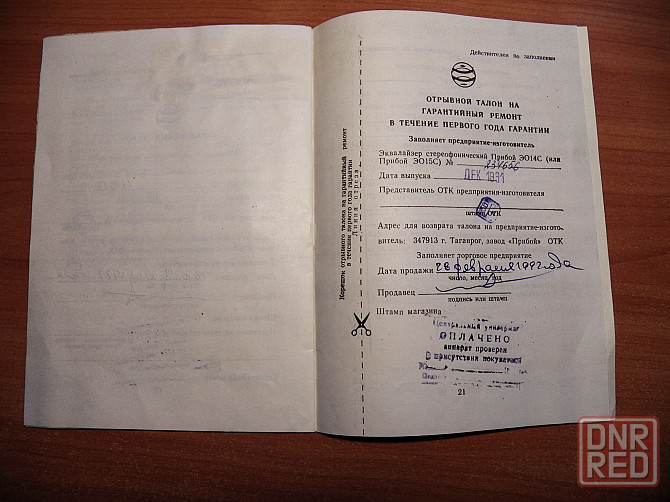 Действителен по заполнении
ОТРЫВНОЙ ТАЛОН НА
ГАРАНТИЙНЫЙ РЕМОНТ
В ТЕЧЕНИЕ ПЕРВОГО ГОДА ГАРАНТИИ
Заполняет предприятие-изготовитель
Эквалайзер стереофонический Прибой ЭО14С (или
Прибой ЭО15С) № 234656
Дата выпуска ДЕК 1991
Представитель ОТК предприятия-изготовителя
штамп ОТК
Адрес для возврата талона на предприятие-изгото-
витель: 347913 г. Таганрог, завод «Прибой» ОТК
Заполняет торговое предприятие
Дата продажи 28 февраля 1992 года
число, месяц, год
Продавец
подпись или штамп
Штамп магазина
Центральный универмаг
ОПЛАЧЕНО
аппарат проверен
В присутствия покупателя
21
Корешок отрывного талона на гарантийный ремонт
в течение первого года гарантии
Линия отреза
DNR
RED